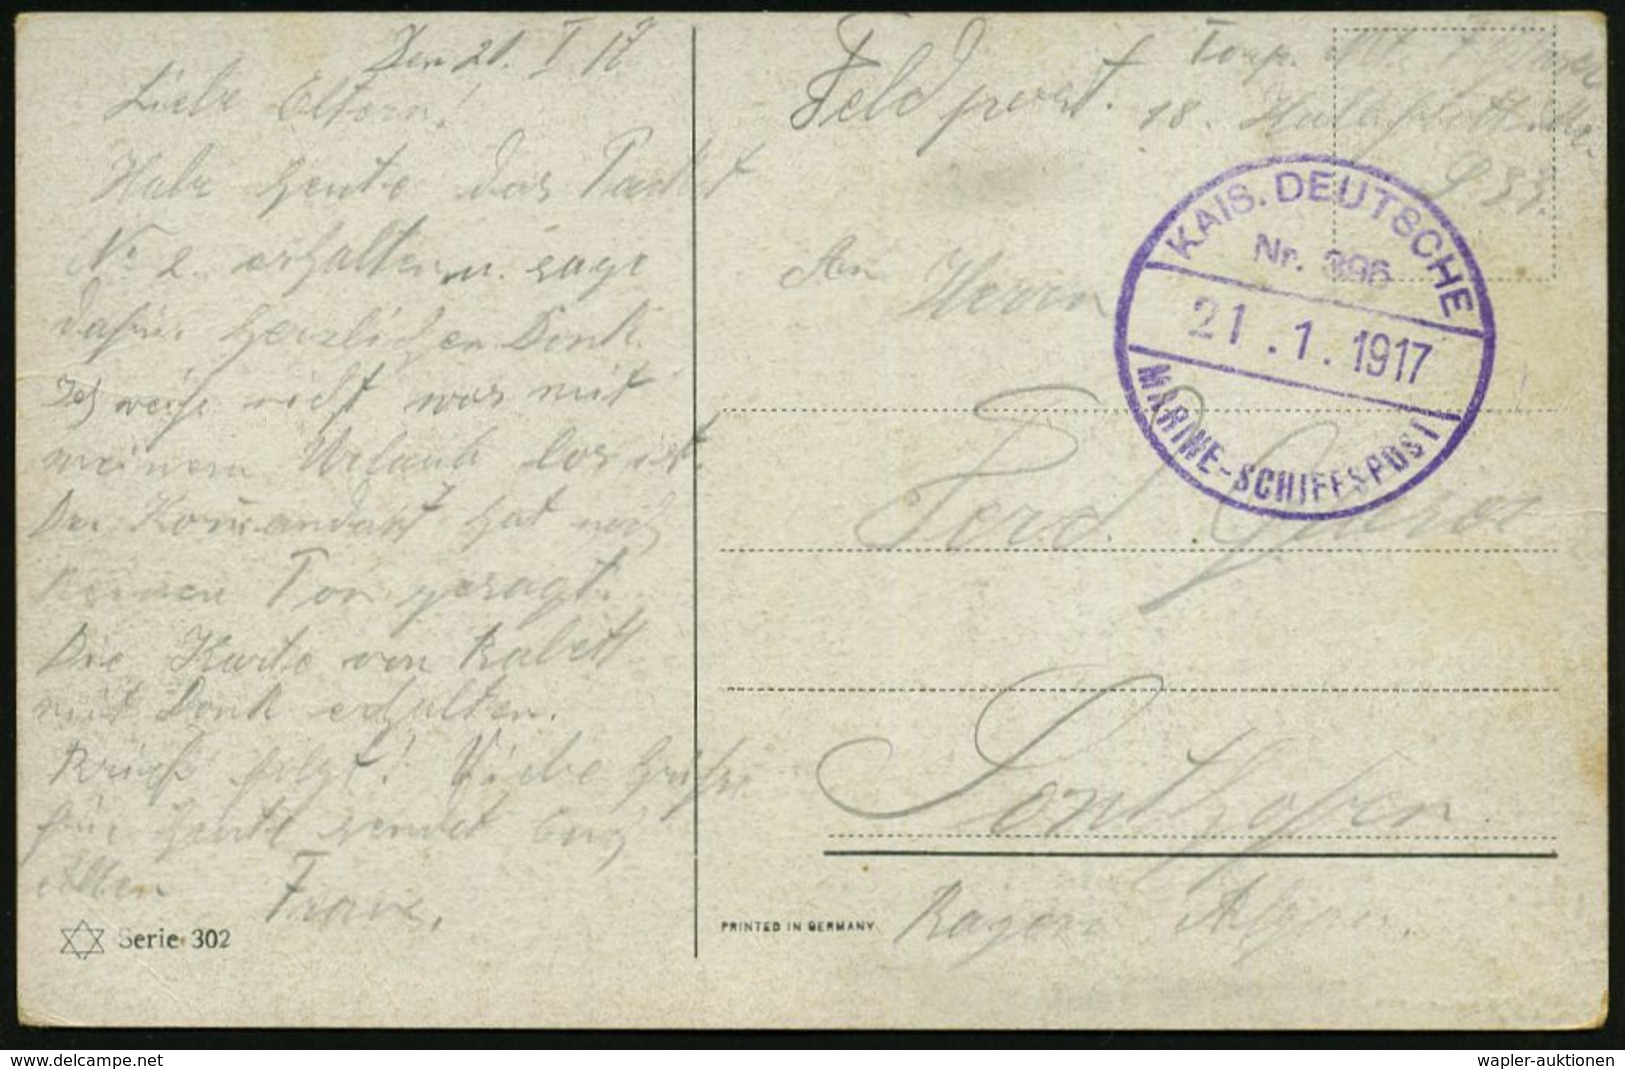 Den 21. I 17
Liebe Eltern!
Habe heute das Packet
No 2. erhalten u. sage
dafür herzlichen Dank.
Ich weiß nicht was mit
meinem Urlaub los ist.
Der Komandant hat mich
keinen Ton gesagt.
Die Karte von Babett
mit Dank erhalten.
Brief folgt! Viele Grüße
für heute sendet Euch
Allen
Serie 302
Feldpost.
18. Halbflott.
An Herrn
Ferd.
Sonthofen
Bayern
PRINTED IN GERMANY
KAIS. DEUTSCHE
Nr. 396
21.1.1917
MARINE-SCHIFFSPOST
delcampe.net
wapler-auktionen